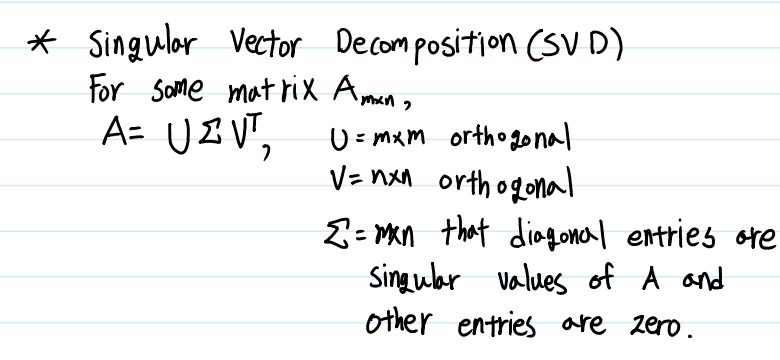 * Singular Vector Decomposition (SVD)
For some matrix A_{m×n},
A = U Σ V^T, U = m×m orthogonal
V = n×n orthogonal
Σ = m×n that diagonal entries are
singular values of A and
other entries are zero.